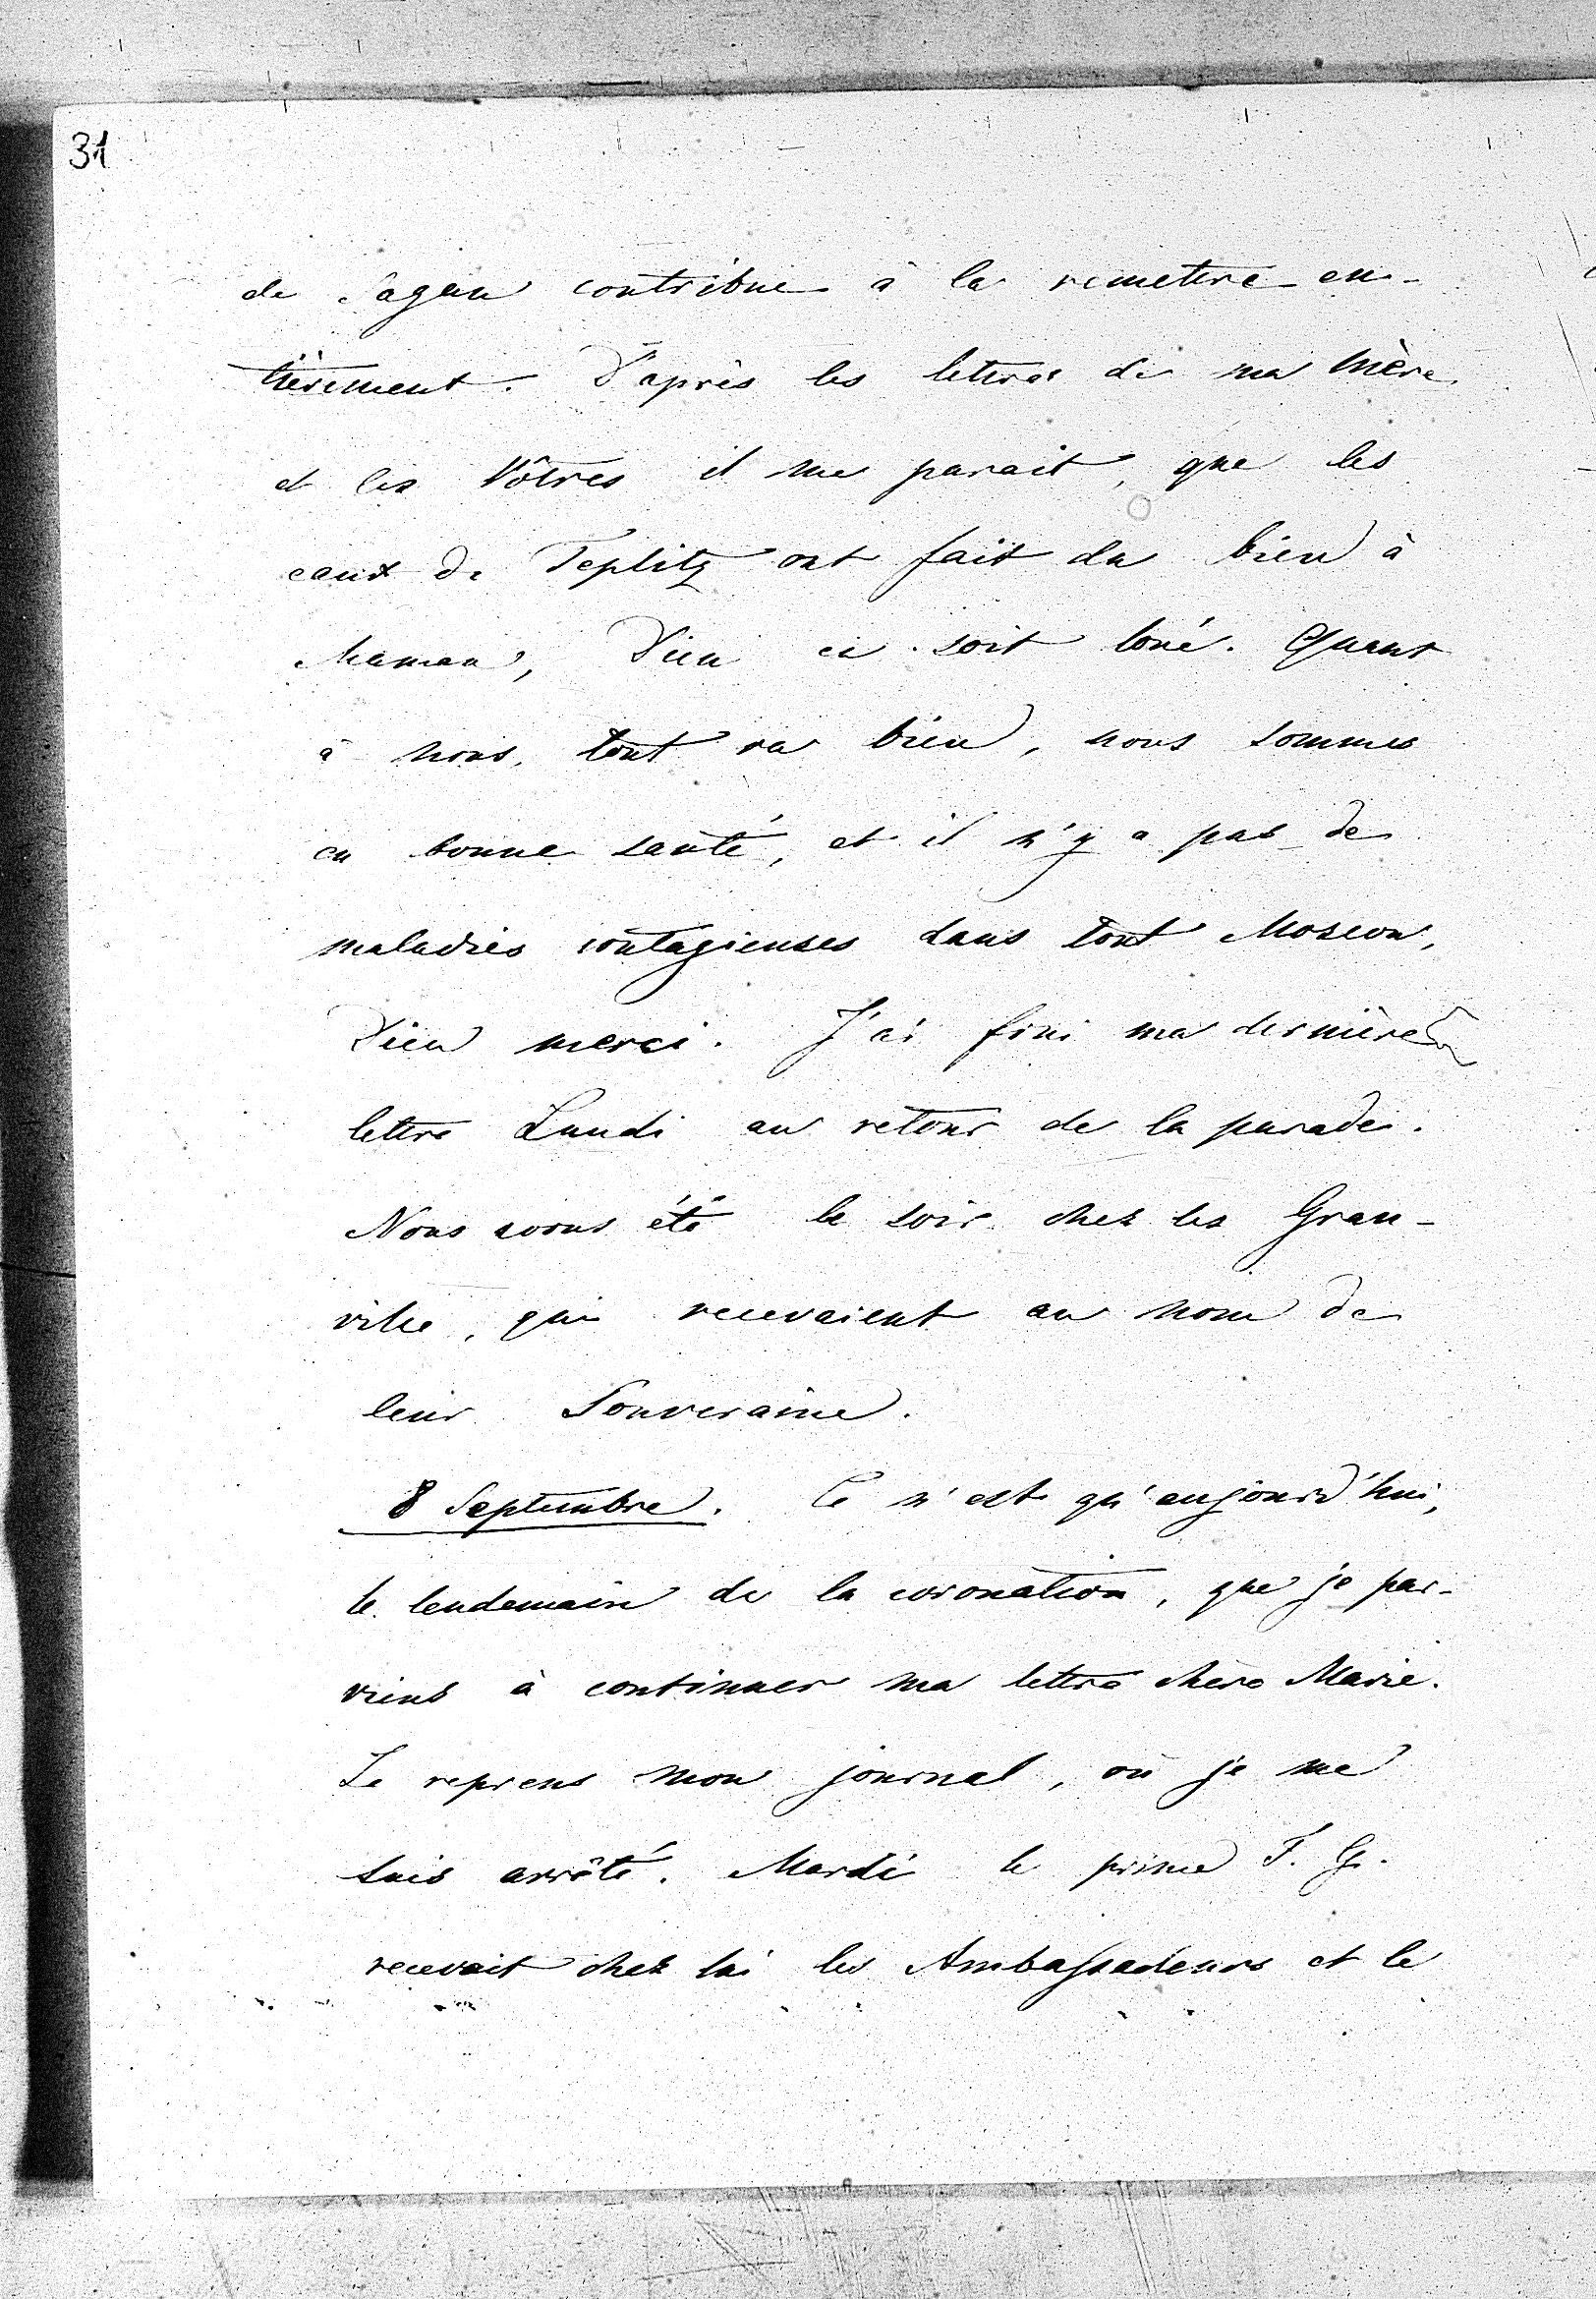 31
de Sagan contribue à la remettre en-
tièrement. D'après les lettres de ma Mère
et les Vôtres il me parait, que les
eaux de Teplitz ont fait du bien à
Maman, Dieu en soit loué. Quant
à nous, tout va bien, nous sommes
en bonne santé, et il n'y a pas de
maladies contagieuses dans tout Moscou,
Dieu merci. J'ai fini ma dernière
lettre Lundi au retour de la parade.
Nous avons été le soir chez les Gran-
ville, qui recevaient au nom de
leur Souveraine.
8 Septembre. Ce n'est qu'aujourd'hui,
le lendemain de la coronation, que je par-
viens à continuer ma lettre chère Marie.
Je reprens mon journal, où je me
suis arrêté. Mardi le prince F. G.
recevait chez lui les Ambassadeurs et le